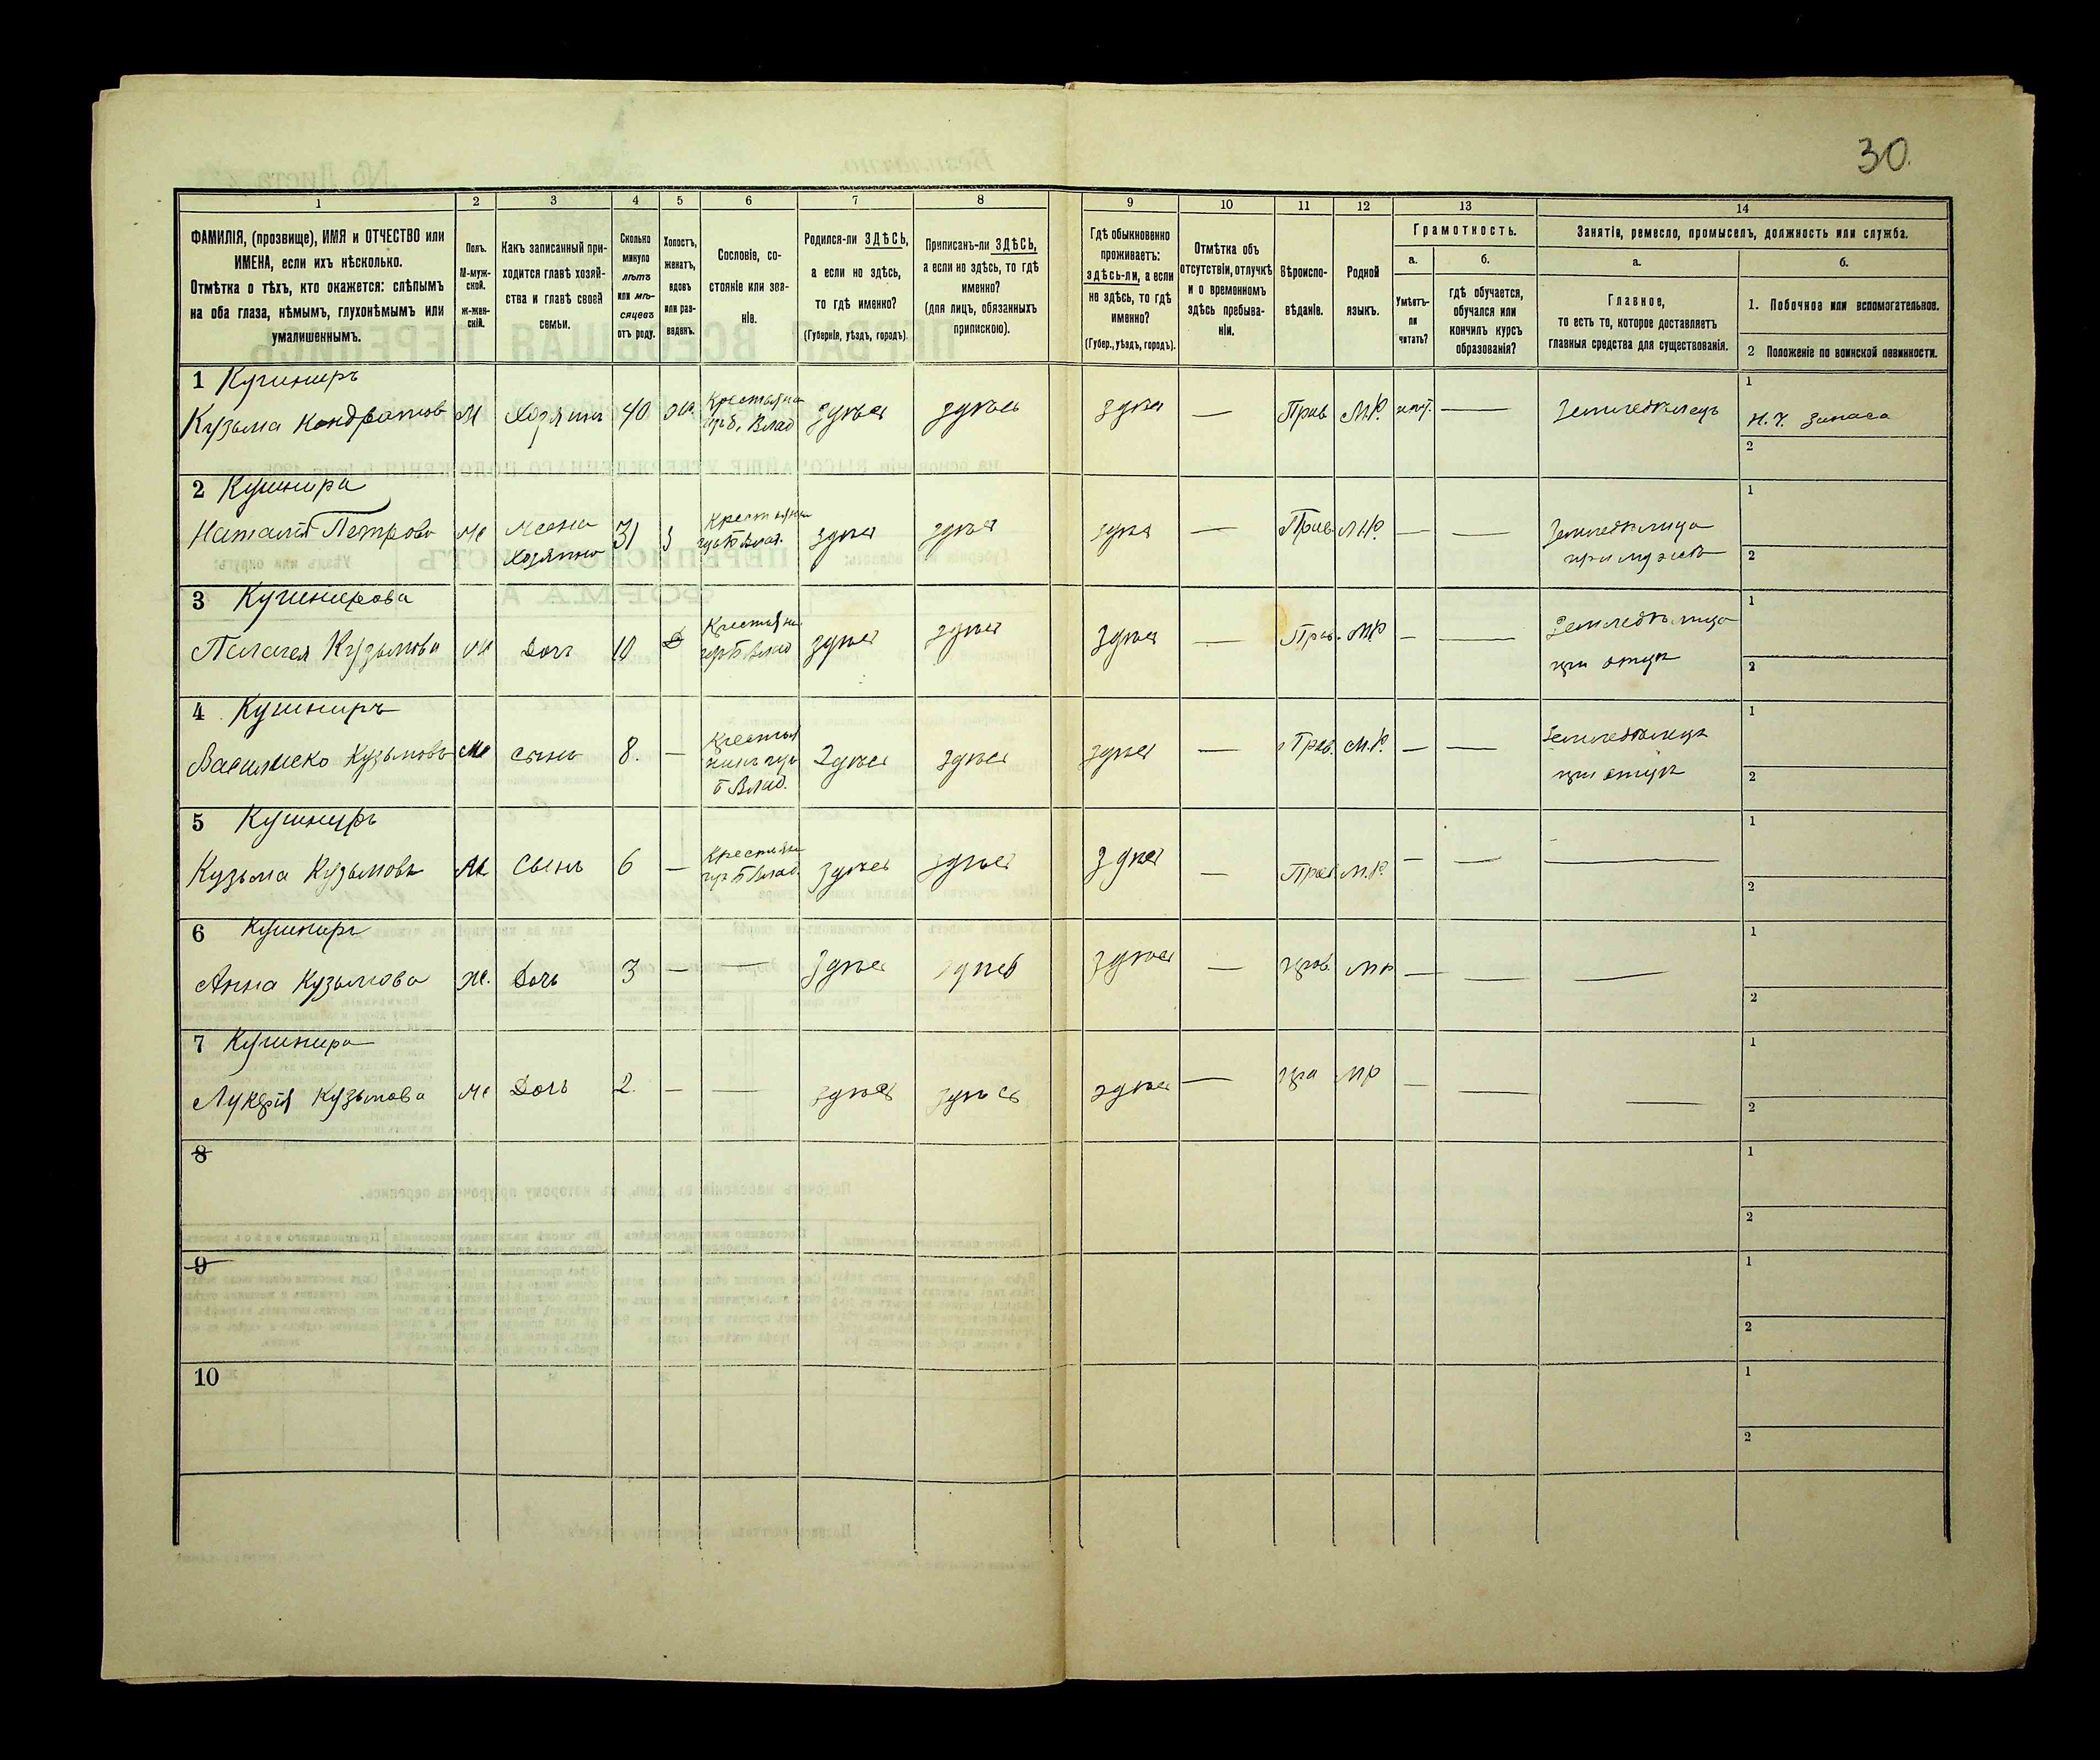 30.
1 2 3 4 5 6 7 8 9 10 11 12 13 14
ФАМИЛІЯ, (прозвище), ИМЯ и ОТЧЕСТВО или
ИМЕНА, если ихъ нѣсколько.
Отмѣтка о тѣхъ, кто окажется: слѣпымъ
на оба глаза, нѣмымъ, глухонѣмымъ или
умалишеннымъ.
Полъ.
М-муж-
ской.
Ж-жен-
скій.
Какъ записанный при-
ходится главѣ хозяй-
ства и главѣ своей
семьи.
Сколько
минуло
лѣтъ
или мѣ-
сяцевъ
отъ роду.
Холостъ,
женатъ,
вдовъ
или раз-
веденъ.
Сословіе, со-
стояніе или зва-
ніе.
Родился-ли ЗДѢСЬ,
а если не здѣсь,
то гдѣ именно?
(Губернія, уѣздъ, городъ).
Приписанъ-ли ЗДѢСЬ,
а если не здѣсь, то гдѣ
именно?
(для лицъ, обязанныхъ
припискою).
Гдѣ обыкновенно
проживаетъ:
здѣсь-ли, а если
не здѣсь, то гдѣ
именно?
(Губер., уѣздъ, городъ).
Отмѣтка объ
отсутствіи, отлучкѣ
и о временномъ
здѣсь пребыва-
ніи.
Вѣроиспо-
вѣданіе.
Родной
языкъ.
Грамотность.
а.
Умѣетъ-
ли
читать?
б.
гдѣ обучается,
обучался или
кончилъ курсъ
образованія?
Занятіе, ремесло, промыселъ, должность или служба.
а.
Главное,
то есть то, которое доставляетъ
главныя средства для существованія.
б.
1. Побочное или вспомогательное.
2 Положеніе по воинской повинности.
1 Кушниръ
Кузьма Кондратов М Хозяинъ 40 Крестьяни здѣсь здѣсь здѣсь — Прав М.Р. — Земледѣлецъ 1 Н. Ч. Запаса
2
2 Кушнира
Наталія Петрова Ж Жена Хозяина 31 з Крестьянка здѣсь здѣсь здѣсь — Прав М.Р. — — Земледѣлица при мужѣ 1
2
3 Кушнирова
Палагея Кузьмова Ж Дочь 10 Д здѣсь здѣсь здѣсь — Прав. МР — — Земледѣлица при отцѣ 1
2
4 Кушниръ
Кузьмовъ М сынъ 8. — Крестья нинъ б Влад. Здѣсь здѣсь здѣсь — Прав. М.Р. — — Земледѣлецъ при отцѣ 1
2
5 Кушниръ
Кузьма Кузьмовъ М Сынъ 6 — здѣсь здѣсь здѣсь — Прав М.Р. — — — 1
2
6 Кушниръ
Анна Кузьмова Ж. Дочь 3 — — здѣсь здѣсь здѣсь — прав МР — — — 1
2
7 Кушнира
Лукерія Кузьмова Ж Дочь 2. — — здѣсь здѣсь здѣсь — пра МР — — — 1
2
8 1
2
9 1
2
10 1
2